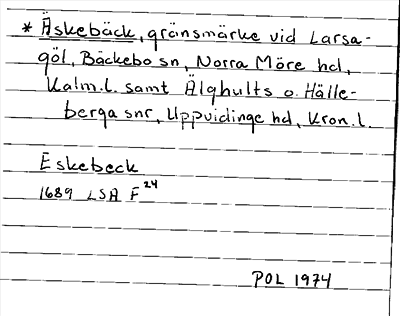 * Äskebäck, gränsmärke vid Larsa-
göl, Bäckebo sn, Norra Möre hd,
Kalm.l. samt Älghults o. Hälle-
berga snr, Uppvidinge hd, Kron.l.
Eskebeck
1689 LSA F 24
POL 1974